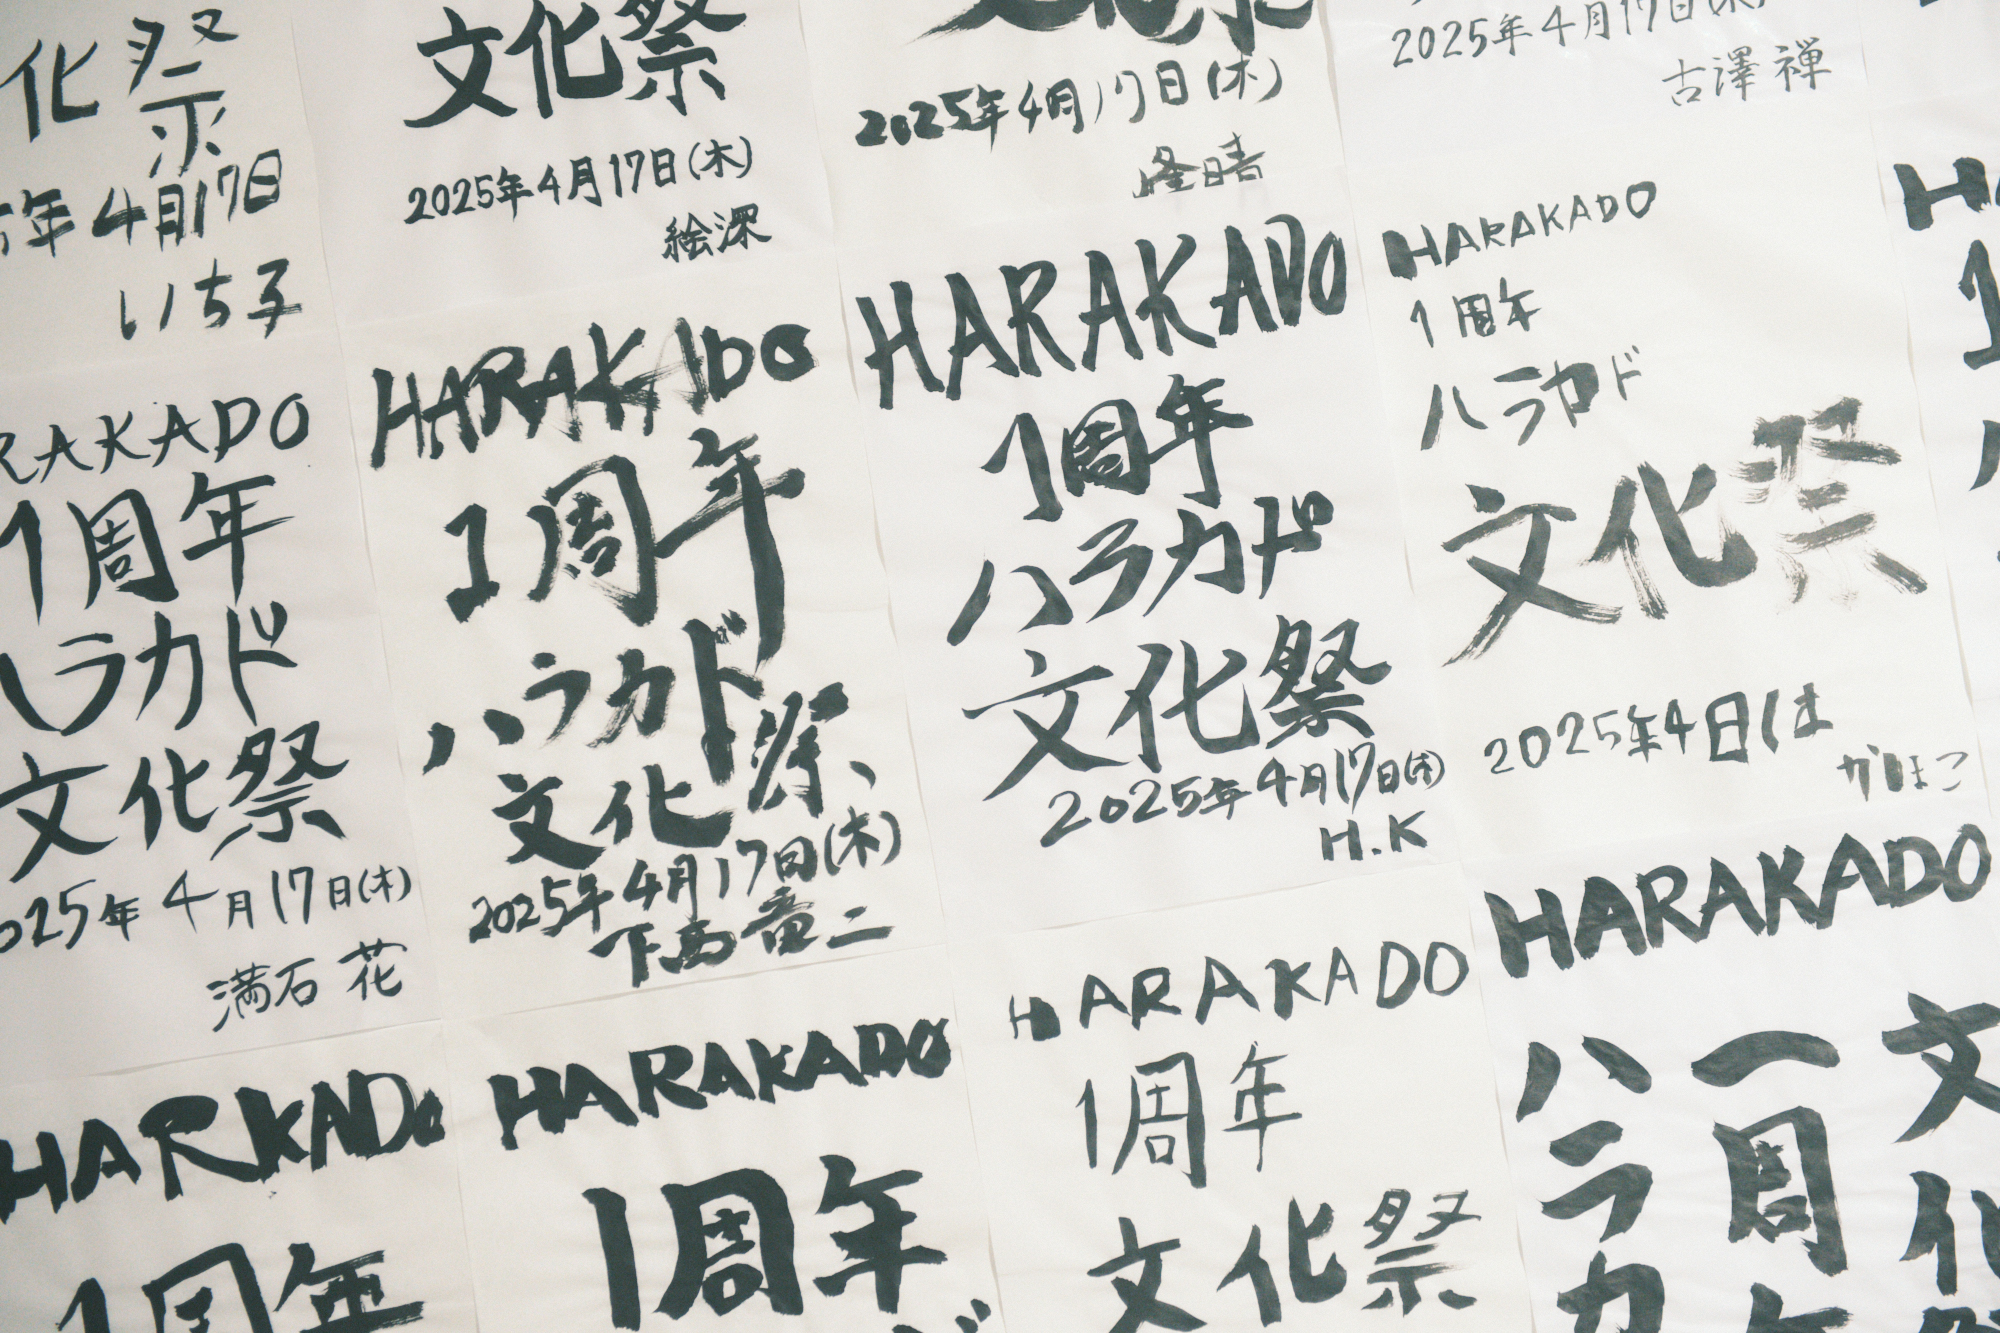 化祭
年4月17日
いち子
文化祭
2025年4月17日(木)
絵深
2025年4月17日(木)
2025年4月17日(木)
古澤 禅
RAKADO
1周年
ハラカド
文化祭
025年4月17日(木)
満石 花
HARAKADO
1周年
ハラカド
文化祭
2025年4月17日(木)
下西竜二
HARAKADO
1周年
ハラカド
文化祭
2025年4月17日(木)
H.K
HARAKADO
1周年
ハラカド
文化祭
2025年4日(は
かほこ
HA
1
HARKADO
1周年
HARAKADO
1周年
HARAKADO
1周年
文化祭
HARAKADO
文化
一周
ハラカ